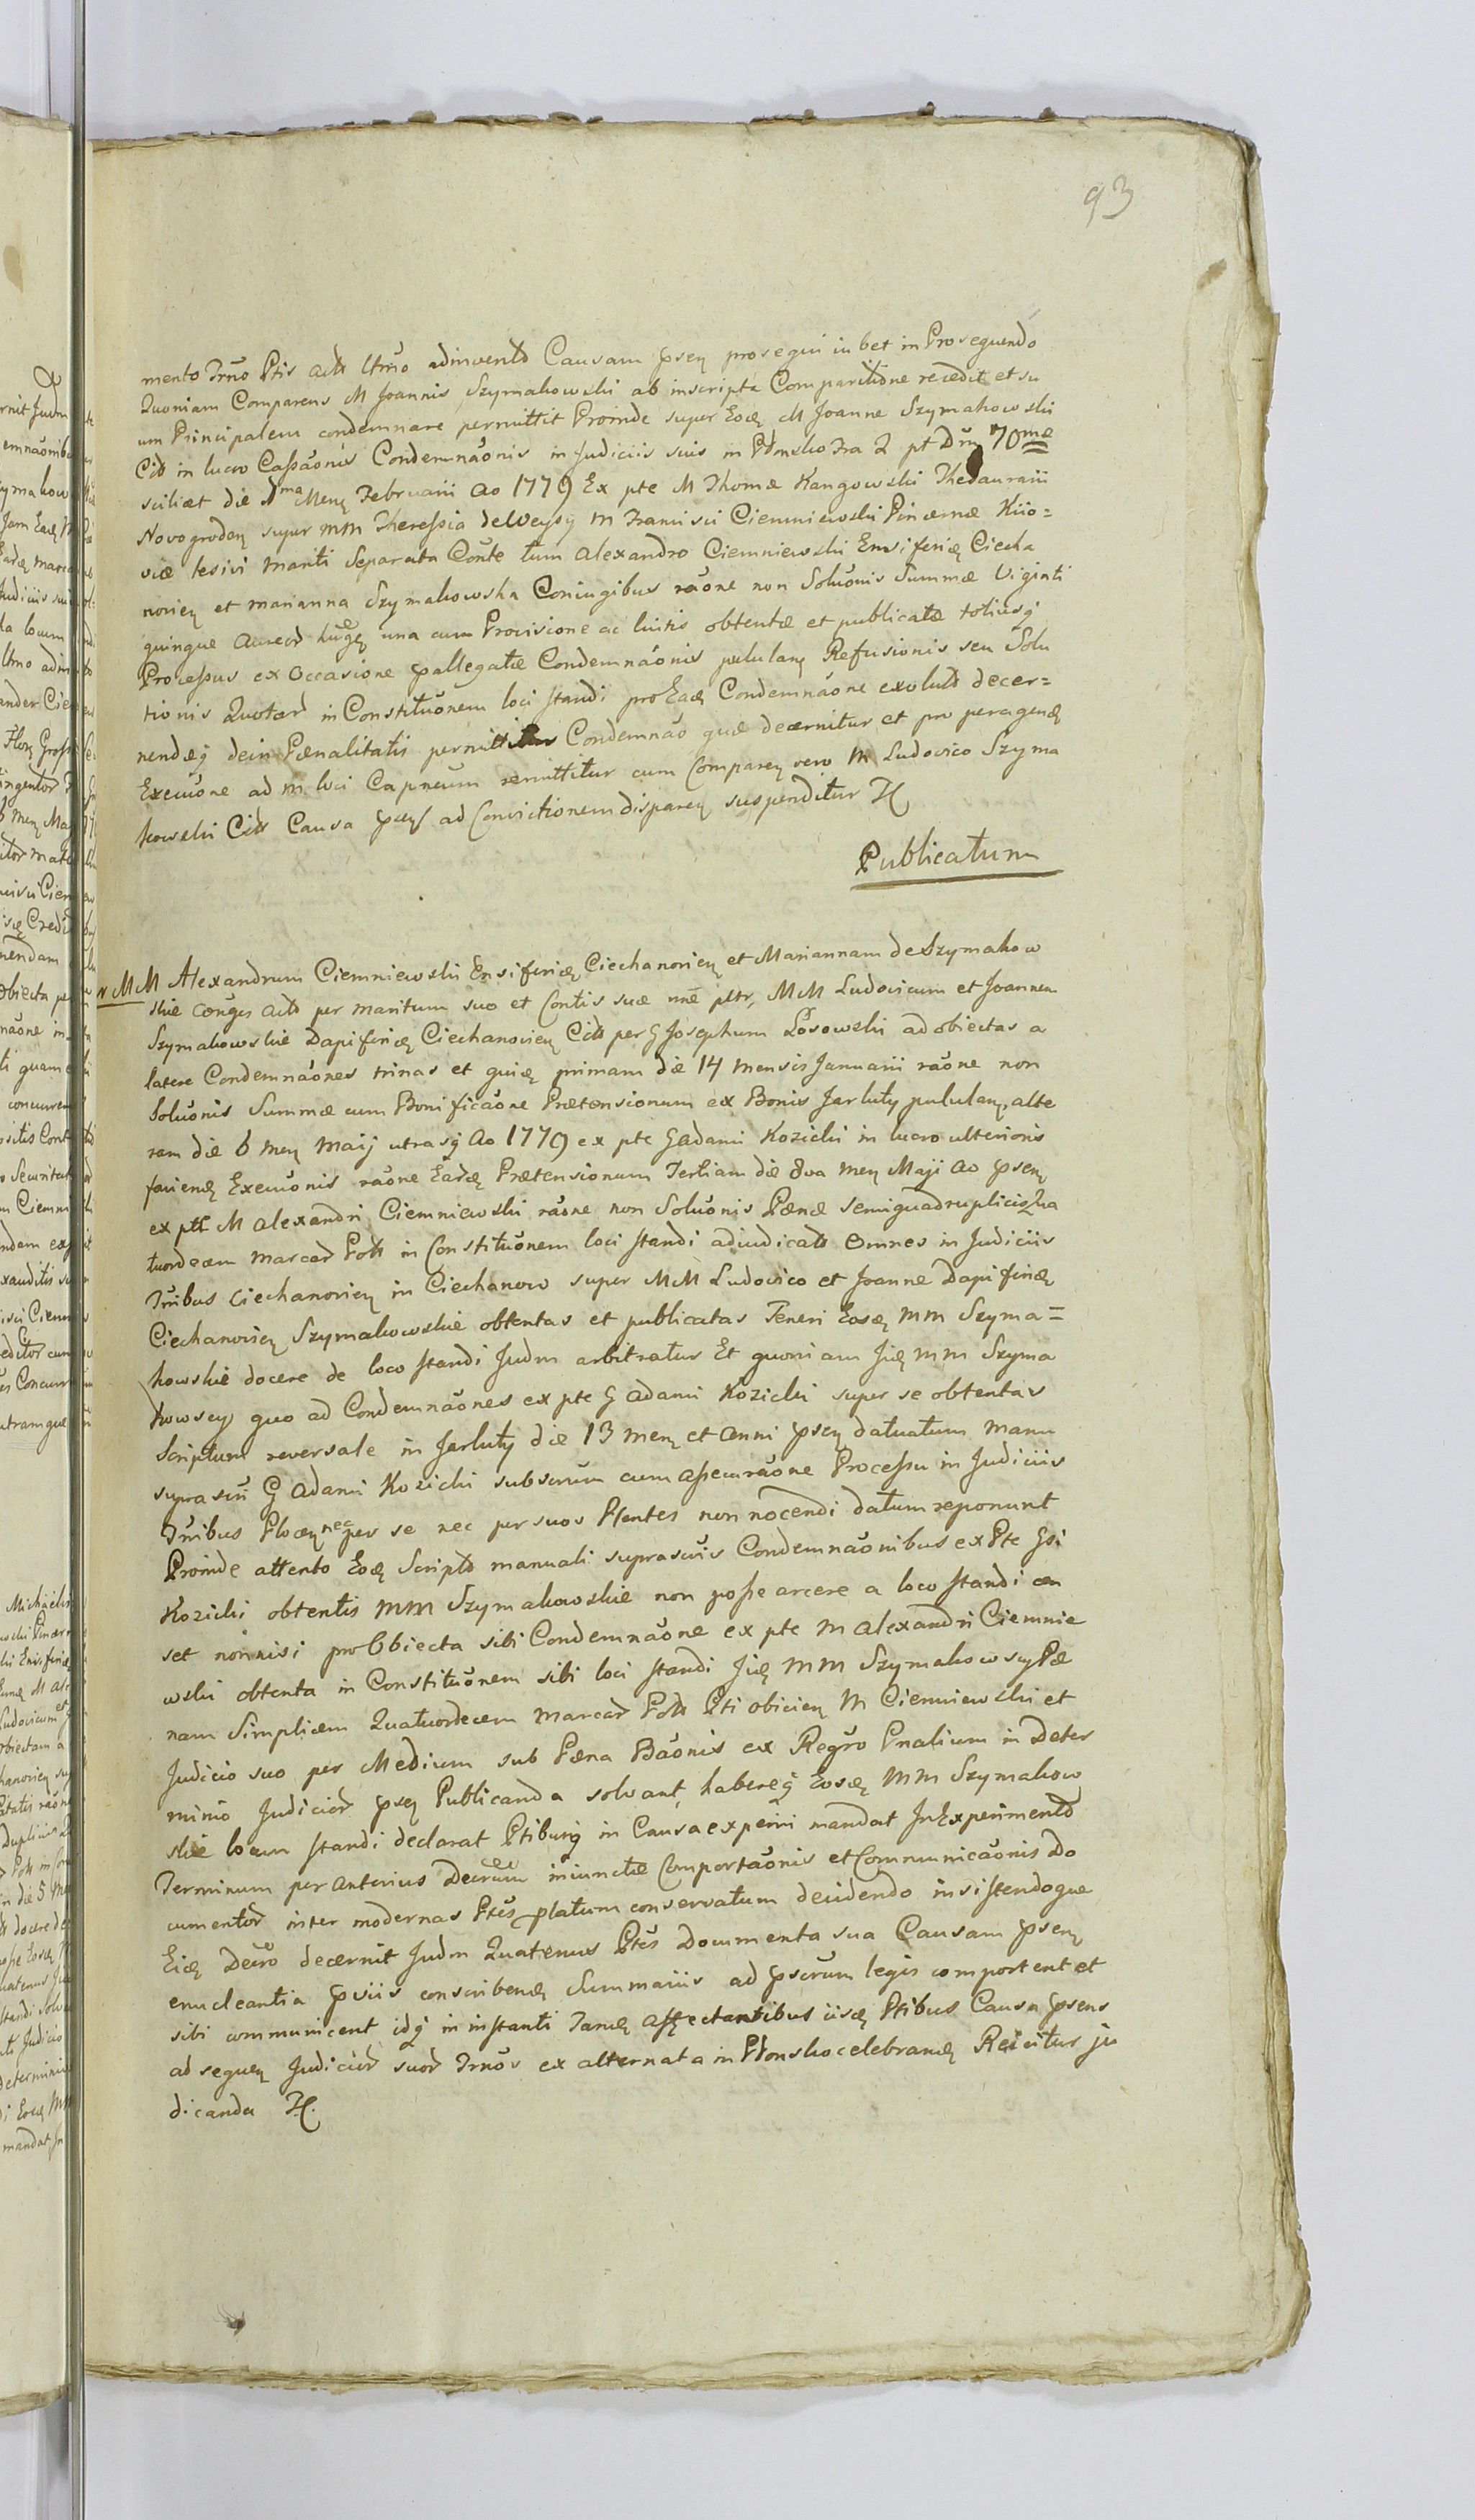 93
mento Trno Ptis actt Ultmo adinvento Causam pseɳ prosequi iubet in Prosequendo
Quoniam Comparens M Joannis Szymakowski ab inscripta Comparitione recedit et su
um Principalem condemnare permittit Proinde super Eođ M Joanne Szymakowski
Citt in lucro Cassaonis Condemnaonis in Judiciis suis in Płonsko Fra 2 pt Dm 70mæ
scilicet die 1ma Menɳ Februarii Ao 1779 Ex pte M Thomæ Kangowski Thesaurarii
Novogrodenɳ super MM Theressia de Weysy M Francisci Ciemniewski Pincernæ Kiio=
viæ lesivi mariti Separata Conte tum Alexandro Ciemniewski Ensiferiđ Ciecha
norien et Marianna Szymakowska Coniugibus raone non Soluonis Summæ Viginti
quinque Aureor una cum Provisione ac luitis obtentæ et publicatæ totiusq
Processus ex Occasione pallegatæ Condemnaonis pululanɳ Refusionis seu Solu
tionis Quotar in Constituonem loci standi pro Eađ Condemnaone exolutt decer=
nendæq dein Pænalitatis permittitur Condemnao quæ decernitur et pro peragenđ
Execuone ad M loci Capneum remittitur cum Compareɳ vero M Ludovico Szyma
kowski Citt Causa pseɳ ad Convictionem dispareɳ suspenditur H
Publicatum
MM Alexandrum Ciemniewski Ensiferiđ Ciechanorienɳ et Mariannam de Szymakow
skie Conges actt per maritum suo et Contis suæ nne pltr, MM Ludovicum et Joannem
Szymakowskie Dapiferiđ Ciechanorienɳ Citt per G Josephum Łosowski ad obiectas a
latere Condemnaones trinas et quiđ primam die 14 mensis Januarii raone non
Soluonis Summæ cum Bonificaone Prætensionum ex Bonis Jarluty pululanɳ, alte
ram die 6 menɳ Maij utrasq Ao 1779 ex pte G Adami Kozicki in lucro ulterioris
faciendđ Execuonis raone Earđ Prætensionum Tertiam die 8va menɳ Maji Ao pseɳ
ex pte M Alexandri Ciemniewski raone non Soluonis Pænæ Semiquadruplicis Qua
tuordecem Marcar Potk in Constituonem loci standi adiudicatt Omnes in Judiciis
Trribus Ciechanorienɳ in Ciechanow super MM Ludovico et Joanne Dapiferiđ
Ciechanorienɳ Szymakowskie obtentas et publicatas Teneri Eosđ MM Szyma=
kowskie docere de loco standi Judm arbitratur Et quoniam Jiđ MM Szyma
kowscy quo ad Condemnaones ex pte G Adami Kozicki super se obtentas
Scriptum reversale in Jarluty die 13 menɳ et Anni pseɳ datuatum manu
suprascri G Adami Kozicki subscrum cum assecuraone Processu in Judiciis
Trribus Plocenɳ nec per se nec per suos Plentes non nocendi datum reponunt
Proinde attento Eođ Scripto manuali suprascris Condemnaonibus ex Pte Gsi
Kozicki obtentis MM Szymakowskie non posse arcere a loco standi cen
set nonnisi pro Obiecta sibi Condemnaone ex pte M Alexandri Ciemnie
wski obtenta in Constituonem sibi loci standi Jiđ MM Szymakowscy Pæ
nam Simplicem Quatuordecem Marcar Potk Pti obicienɳ M Ciemniewski et
Judicio suo per Medium sub Pæna Baonis ex Regro Pnalium in Deter
mino Judicior pseɳ Publicanda solvant, habereq Eosđ MM Szymakow
skie locum standi declarat Ptibusq in Causa experiri mandat In Experimento
Terminum per anterius Decrum iniunctæ Comportaonis et Communicaonis Do
cumentor inter modernas Ptes platum conservatum decidendo insistendoque
Eiđ Decro decernit Judm Quatenus Ptes Documenta sua Causam pseɳ
enucleantia pviis conscribenđ Summariis ad pscrum legis comportent et
sibi communicent idq in instanti Tanđ affectantibus iisđ Ptibus Causa psens
ad sequenɳ Judicior suor Trnos ex alternata in Płonsko celebranđ Reicitur ju
dicanda H.